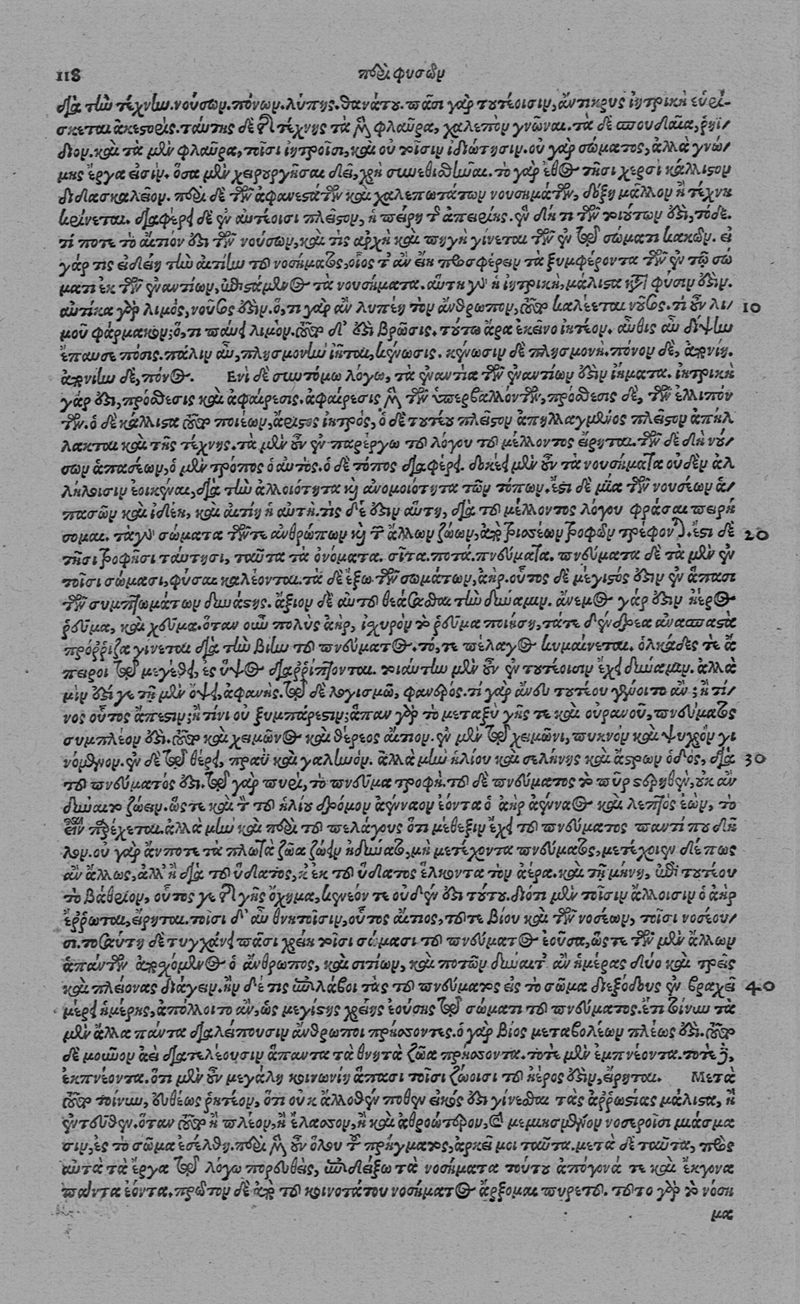 118 περὶ φυσῶν
διὰ τὴν τέχνην. νούσων. πόνων. λύπης. θανάτου. πᾶσι γὰρ τουτέοισιν, ἄντικρυς ἰητρικὴ εὑρί-
σκεται ἀκεστρίς. ταύτης δὲ τῆς τέχνης τὰ μὲν φλαῦρα, χαλεπὸν γνῶναι. τὰ δὲ σπουδαῖα, ῥηΐ-
διον. καὶ τὰ μὲν φλαῦρα, τοῖσι ἰητροῖσι, καὶ οὐ τοῖσιν ἰδιώτησιν. οὐ γὰρ σώματος, ἀλλὰ γνώ-
μης ἔργα εἰσίν. ὅσα μὲν χειρουργῆσαι δεῖ, χρὴ συνεθισθῆναι. τὸ γὰρ ἔθος τῇσι χερσὶ κάλλιστον
διδασκαλεῖον. περὶ δὲ τῶν ἀφανεστάτων καὶ χαλεπωτάτων νουσημάτων, δόξῃ μᾶλλον ἢ τέχνῃ
κρίνεται. διαφέρει δὲ ἐν αὐτέοισι πλεῖστον, ἡ πείρη τῆς ἀπειρίης. ἓν δή τι τῶν τοιούτων ἐστὶ, τόδε.
τί ποτε τὸ αἴτιον ἐστὶ τῶν νούσων, καὶ τίς ἀρχὴ καὶ πηγὴ γίνεται τῶν ἐν τῷ σώματι κακῶν. εἰ
γάρ τις εἰδείη τὴν αἰτίην τοῦ νοσήματος, οἷός τ' ἂν εἴη προσφέρειν τὰ ξυμφέροντα τῶν ἐν τῷ σώ
ματι ἐκ τῶν ἐναντίων, ἐπιστάμενος τὰ νουσήματα. αὕτη γὰρ ἡ ἰητρικὴ, μάλιστα κατὰ φύσιν ἐστίν.
αὐτίκα γὰρ λιμὸς, νοῦσός ἐστιν. ὅ, τι γὰρ ἂν λυπέῃ τὸν ἄνθρωπον, τοῦτο καλέεται νοῦσος. τί οὖν λι- 10
μοῦ φάρμακον; ὅ, τι παύει λιμόν. τοῦτο δ' ἐστὶ βρῶσις. τούτῳ ἄρα ἐκεῖνο ἰητέον. αὖθις αὖ δίψην
ἔπαυσε πόσις. πάλιν αὖ, πλησμονὴν ἰῆται, κένωσις. κένωσιν δὲ πλησμονή. πόνον δὲ, ἀπονίη.
ἀπονίην δὲ, πόνος. Ἑνὶ δὲ συντόμῳ λόγῳ, τὰ ἐναντία τῶν ἐναντίων ἐστὶν ἰήματα. ἰητρικὴ
γάρ ἐστι, πρόσθεσις καὶ ἀφαίρεσις. ἀφαίρεσις μὲν τῶν ὑπερβαλλόντων, πρόσθεσις δὲ, τῶν ἐλλιπόν
των. ὁ δὲ κάλλιστα τοῦτο ποιέων, ἄριστος ἰητρὸς, ὁ δὲ τουτέου πλεῖστον ἀπηλλαγμένος πλεῖστον ἀπήλ
λακται καὶ τῆς τέχνης. τὰ μὲν οὖν ἐν παρέργῳ τοῦ λόγου τοῦ μέλλοντος εἴρηται. τῶν δὲ δὴ νού-
σων ἁπασέων, ὁ μὲν τρόπος ὁ αὐτὸς. ὁ δὲ τόπος διαφέρει. δοκέει μὲν οὖν τὰ νουσήματα οὐδὲν ἀλ
λήλοισιν ἐοικέναι, διὰ τὴν ἀλλοιότητα καὶ ἀνομοιότητα τῶν τόπων. ἔστι δὲ μία τῶν νουσέων ἁ-
πασῶν καὶ ἰδέη, καὶ αἰτίη ἡ αὐτή. τίς δ' ἐστὶν αὕτη, διὰ τοῦ μέλλοντος λόγου φράσαι πειρή
σομαι. τὰ γὰρ σώματα τῶν τε ἀνθρώπων καὶ τῶν ἄλλων ζώων, ἀπὸ τρισσέων τροφῶν τρέφονται. ἔστι δὲ 20
τῇσι τροφῇσι ταύτῃσι, ταῦτα τὰ ὀνόματα. σῖτα. ποτά. πνεύματα. πνεύματα δὲ τὰ μὲν ἐν
τοῖσι σώμασι, φῦσαι καλέονται. τὰ δὲ ἔξω τῶν σωμάτων, ἀήρ. οὗτος δὲ μέγιστός ἐστιν ἐν ἅπασι
τῶν συμπτωμάτων δυνάστης. ἄξιον δὲ αὐτοῦ θεάσασθαι τὴν δύναμιν. ἄνεμος γάρ ἐστιν ἠέρος
ῥεῦμα, καὶ χεῦμα. ὅταν οὖν πολὺς ἀὴρ, ἰσχυρὸν τὸ ῥεῦμα ποιήσῃ, τά τε δένδρεα ἀνασπαστὰ
πρόρριζα γίνεται διὰ τὴν βίην τοῦ πνεύματος. τό, τε πέλαγος κυμαίνεται. ὁλκάδες τε ἄ
πειροι τῷ μεγέθει, ἐς ὕψος διαρρίπτονται. τοιαύτην μὲν οὖν ἐν τουτέοισιν ἔχει δύναμιν. ἀλλὰ
μὴν ἐστί γε τῇ μὲν ὄψει, ἀφανής. τῷ δὲ λογισμῷ, φανερός. τί γὰρ ἄνευ τουτέου γένοιτο ἄν; ἢ τί-
νος οὗτος ἄπεστιν; ἢ τίνι οὐ ξυμπάρεστιν; ἅπαν γὰρ τὸ μεταξὺ γῆς τε καὶ οὐρανοῦ, πνεύματος
συμπλέον ἐστί. τοῦτο καὶ χειμῶνος καὶ θέρεος αἴτιον. ἐν μὲν τῷ χειμῶνι, πυκνὸν καὶ ψυχρὸν γι
νόμενον. ἐν δὲ τῷ θέρει, πραῢ καὶ γαληνόν. ἀλλὰ μὴν ἡλίου καὶ σελήνης καὶ ἄστρων ὁδὸς, διὰ 30
τοῦ πνεύματός ἐστι. τῷ γὰρ πυρὶ, τὸ πνεῦμα τροφή. τοῦ δὲ πνεύματος τὸ πῦρ στερηθὲν, οὐκ ἂν
δύναιτο ζώειν. ὥστε καὶ τὸν τοῦ ἡλίου δρόμον ἀένναον ἐόντα ὁ ἀὴρ ἀένναος καὶ λεπτὸς ἐὼν, τὸ
ζῆν παρέχεται. ἀλλὰ μὴν καὶ περὶ τοῦ πελάγους ὅτι μέθεξιν ἔχει τοῦ πνεύματος παντί που δῆ
λον. οὐ γὰρ ἄν ποτε τὰ πλωτὰ ζῶα ζώειν ἠδύνατο, μὴ μετέχοντα πνεύματος, μετέχοι δὲ πῶς
ἂν ἄλλως, ἀλλ' ἢ διὰ τοῦ ὕδατος, κἀκ τοῦ ὕδατος ἕλκοντα τὸν ἀέρα. καὶ τῇ μήνῃ, ἐπὶ τουτέου
τὸ βάθρον, οὗτός γε τῆς γῆς ὄχημα, κενεόν τε οὐδέν ἐστι τούτου. διότι μὲν τοῖσιν ἄλλοισιν ὁ ἀὴρ
ἔρρωται, εἴρηται. τοῖσι δ' αὖ θνητοῖσιν, οὗτος αἴτιος, τοῦ τε βίου καὶ τῶν νοσέων, τοῖσι νοσέου-
σι. τοσαύτη δὲ τυγχάνει πᾶσι χρείη τοῖσι σώμασι τοῦ πνεύματος ἐοῦσα, ὥστε τῶν μὲν ἄλλων
ἁπάντων ἀπεχόμενος ὁ ἄνθρωπος, καὶ σιτίων, καὶ ποτῶν δύναιτ' ἂν ἡμέρας δύο καὶ τρεῖς
καὶ πλείονας διάγειν. ἢν δέ τις ἐπιλάβοι τὰς τοῦ πνεύματος εἰς τὸ σῶμα διεξόδους ἐν βραχεῖ 40
μέρει ἡμέρης, ἀπόλλοιτο ἄν, ὡς μεγίστης χρείης ἐούσης τῷ σώματι τοῦ πνεύματος. ἔτι τοίνυν τὰ
μὲν ἄλλα πάντα διαλείπουσιν ἄνθρωποι πρήσσοντες. ὁ γὰρ βίος μεταβολέων πλέως ἐστί. τοῦτο
δὲ μοῦνον ἀεὶ διατελέουσιν ἅπαντα τὰ θνητὰ ζῶα πρήσσοντα. τοτὲ μὲν ἐμπνέοντα. τοτὲ δὲ,
ἐκπνέοντα. ὅτι μὲν οὖν μεγάλη κοινωνίη ἅπασι τοῖσι ζώοισι τοῦ ἠέρος ἐστὶν, εἴρηται. Μετὰ
τοῦτο τοίνυν, εὐθέως ῥητέον, ὅτι οὐκ ἄλλοθέν ποθεν εἰκός ἐστι γίνεσθαι τὰς ἀρρωστίας μάλιστα, ἢ
ἐντεῦθεν. ὅταν τοῦτο ἢ πλέον, ἢ ἔλασσον, ἢ καὶ ἀθροώτερον, καὶ μεμιασμένον νοσεροῖσι μιάσμα
σιν, ἐς τὸ σῶμα ἐσέλθῃ. περὶ μὲν οὖν ὅλου τοῦ πρήγματος, ἀρκεῖ μοι ταῦτα. μετὰ δὲ ταῦτα, πρὸς
αὐτὰ τὰ ἔργα τῷ λόγῳ πορευθεὶς, ἐπιδείξω τὰ νοσήματα τούτου ἀπόγονά τε καὶ ἔκγονα
πάντα ἐόντα. πρῶτον δὲ ἀπὸ τοῦ κοινοτάτου νοσήματος ἄρξομαι πυρετοῦ. τοῦτο γὰρ τὸ νόση
μα